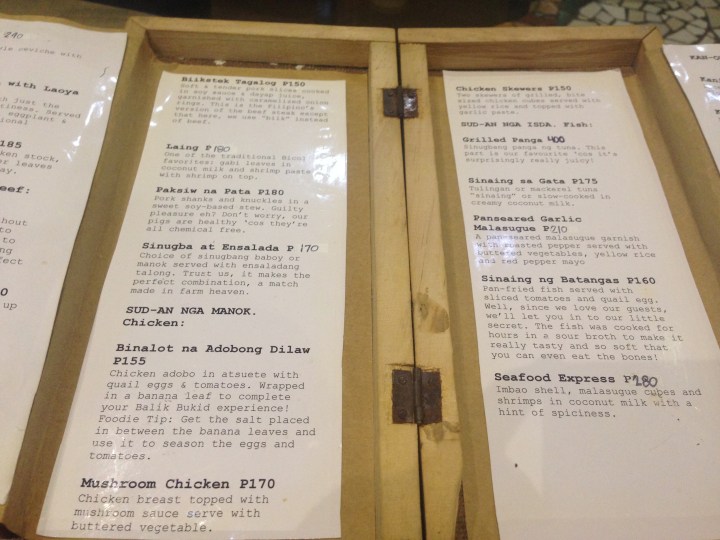 240
ole ceviche with
with Laoya
ch just the
Served
eggplant &
ional
185
ken stock.
er leaves
day.
eef:
hout
to
to
ng
fect
up
Biikstek Tagalog P150
Soft & tender pork slices cooked
in soy sauce & dayap juice,
garnished with caramelized onion
rings. This is the Filipino's
version of the beef steak except
that here, we use "biik" instead
of beef.
Laing P180
One of the traditional Bicol
favorites: gabi leaves in
coconut milk and shrimp paste
with shrimp on top.
Paksiw na Pata P180
Pork shanks and knuckles in a
sweet soy-based stew. Guilty
pleasure eh? Don't worry, our
pigs are healthy 'cos they're
all chemical free.
Sinugba at Ensalada P 170
Choice of sinugbang baboy or
manok served with ensaladang
talong. Trust us, it makes the
perfect combination, a match
made in farm heaven.
SUD-AN NGA MANOK.
Chicken:
Binalot na Adobong Dilaw
P155
Chicken adobo in atsuete with
quail eggs & tomatoes. Wrapped
in a banana leaf to complete
your Balik Bukid experience!
Foodie Tip: Get the salt placed
in between the banana leaves and
use it to season the eggs and
tomatoes.
Mushroom Chicken P170
Chicken breast topped with
mushroom sauce serve with
buttered vegetable.
Chicken Skewers P150
Two skewers of grilled, bite
sized chicken cubes served with
yellow rice and topped with
garlic paste.
SUD-AN NGA ISDA. Fish:
Grilled Panga 400
Sinugbang panga ng tuna. This
part is our favourite 'cos it's
surprisingly really juicy!
Sinaing sa Gata P175
Tulingan or mackerel tuna
"sinaing" or slow-cooked in
creamy coconut milk.
Panseared Garlic
Malasugue P210
A pan-seared malasugue garnish
with roasted pepper served with
buttered vegetables, yellow rice
and red pepper mayo
Sinaing ng Batangas P160
Pan-fried fish served with
sliced tomatoes and quail egg.
Well, since we love our guests,
we'll let you in to our little
secret. The fish was cooked for
hours in a sour broth to make it
really tasty and so soft that
you can even eat the bones!
Seafood Express P280
Imbao shell, malasugue cubes and
shrimps in coconut milk with a
hint of spiciness.
KAN-O